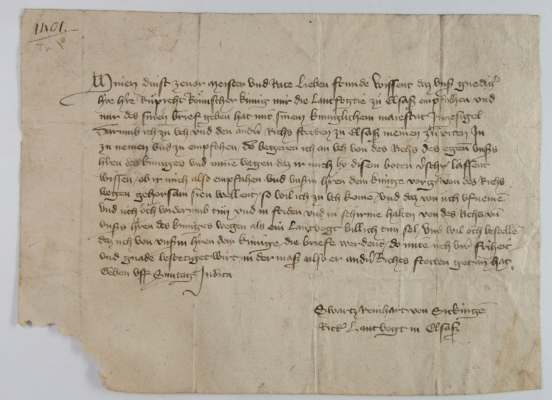 1401.
Minen dinst zevor Meister und Rate Lieben frunde Wissent daz unser gnediger
herre herre Ruprecht Romischer kunig mir die Lantfogtie zu Elsaß empfolhen und
mir des sinen brief geben hat mit sinem kuniglichem maiestat Ingesigel
Darumb ich zu uch und den andern Richs stetten zu Elsaß meinen zu riten In
zu nemen und zu empfahen do begeren ich an uch von des Richs des egenanten unsers
herren des kuniges und mine wegen daz ir mich by disem boten verschriben lassent
wissen, ob ir mich also empfahen und unserm herren dem kunige von des Richs
wegen gehorsam sien wellent, so wil ich zu uch kome, und daz von uch ufneme
und uch och widerumb tun und in friden und in schirme halten von des Richs und
unsers herren des kuniges wegen als ein Lantvogt billich tun sol, und wil och bestelle
daz uch von unserm herren dem kunige, die briefe werdent, do mite uch uwer friheit
und gnade bestetiget wirt, in der maß also er andern Richs stetten geton hat,
Geben uff Suntag Judica
Swartz Reinhart von Sickingen
Ritter Lantvogt in Elsaß